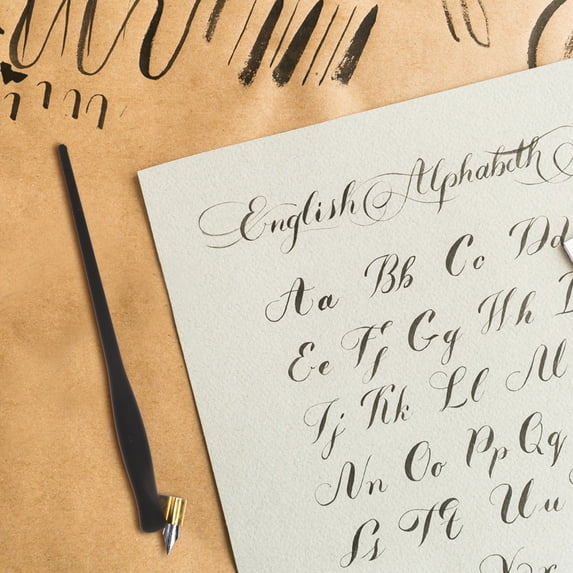 English Alphabeth
Aa Bb Cc Dd
Ee Ff Gg Hh
Jj Kk Ll M
Nn Oo Pp Qq
Ss Tt Uu
Xx